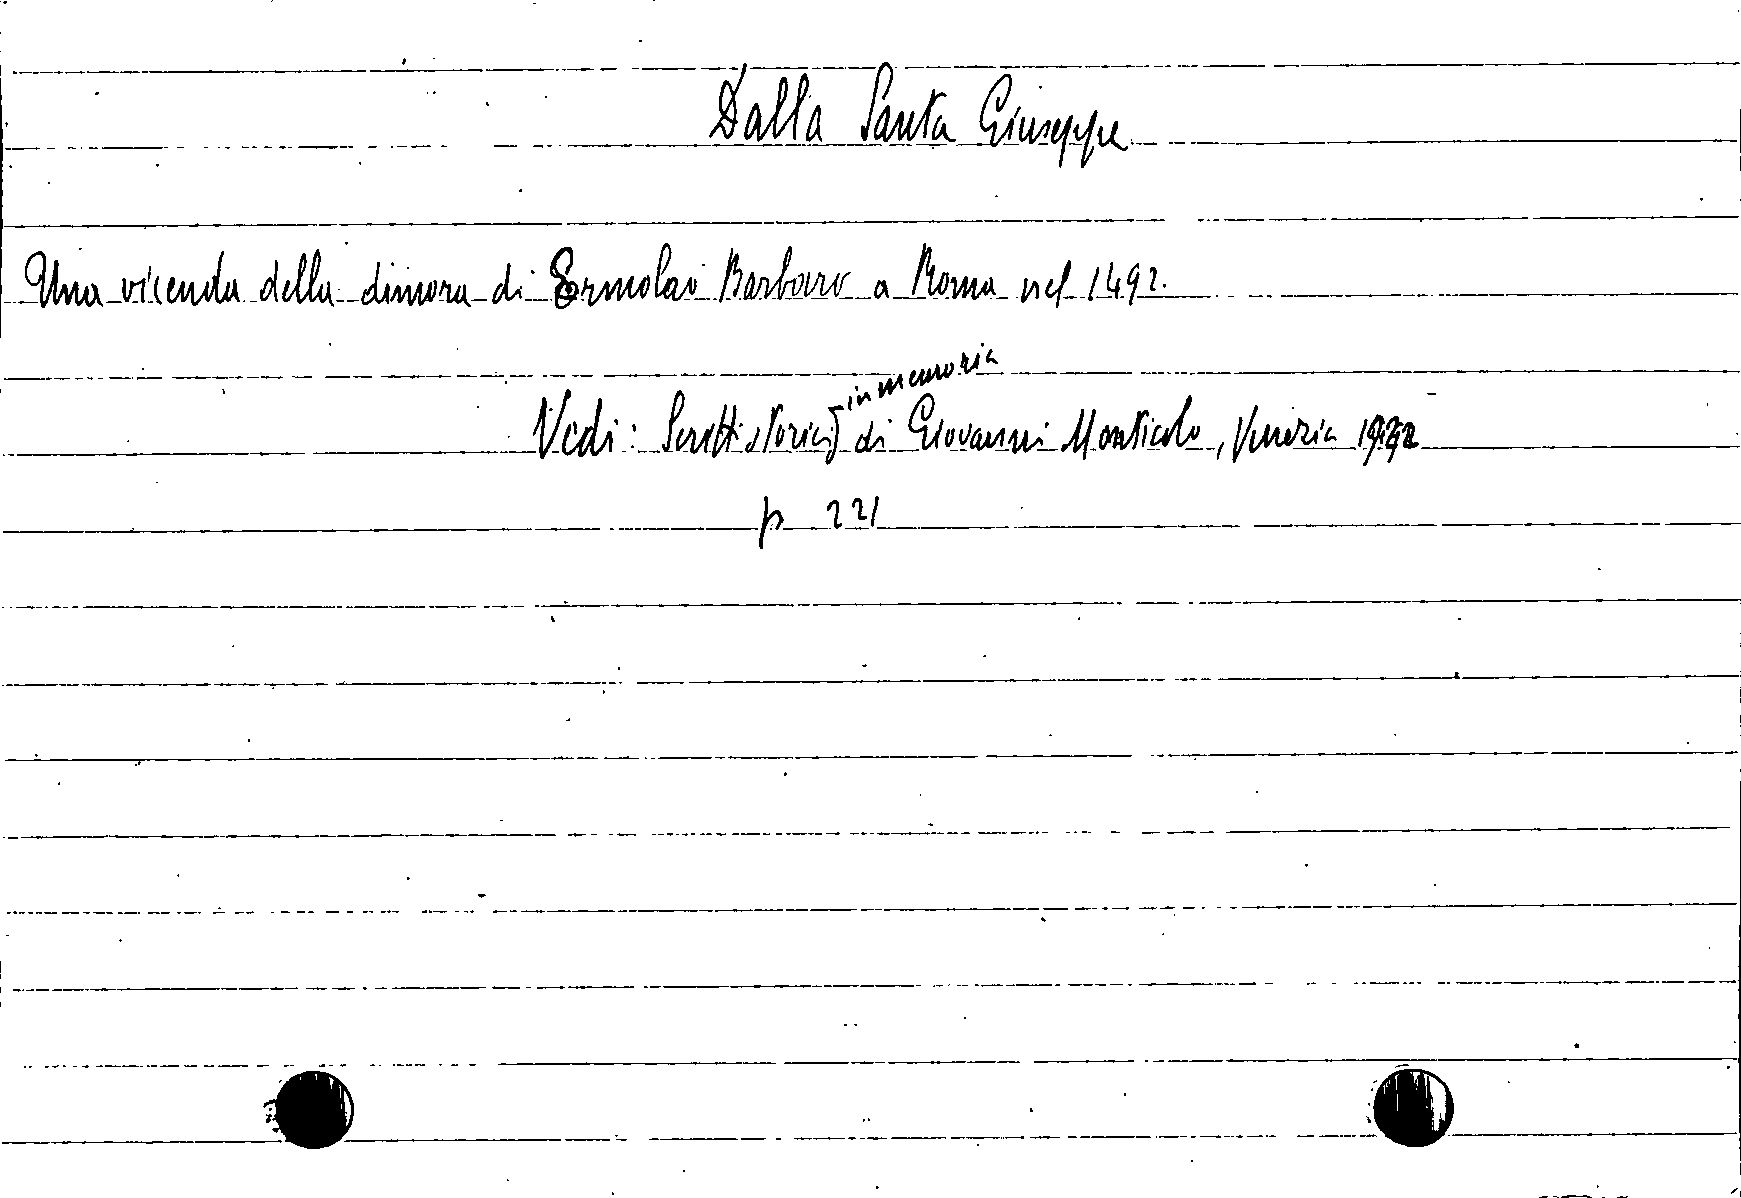 Dalla Santa Giuseppe
Una vicenda della dimora di Ermolao Barbaro a Roma nel 1492.
Vedi: Scritti storici in memoria di Giovanni Monticolo, Venezia
p 221